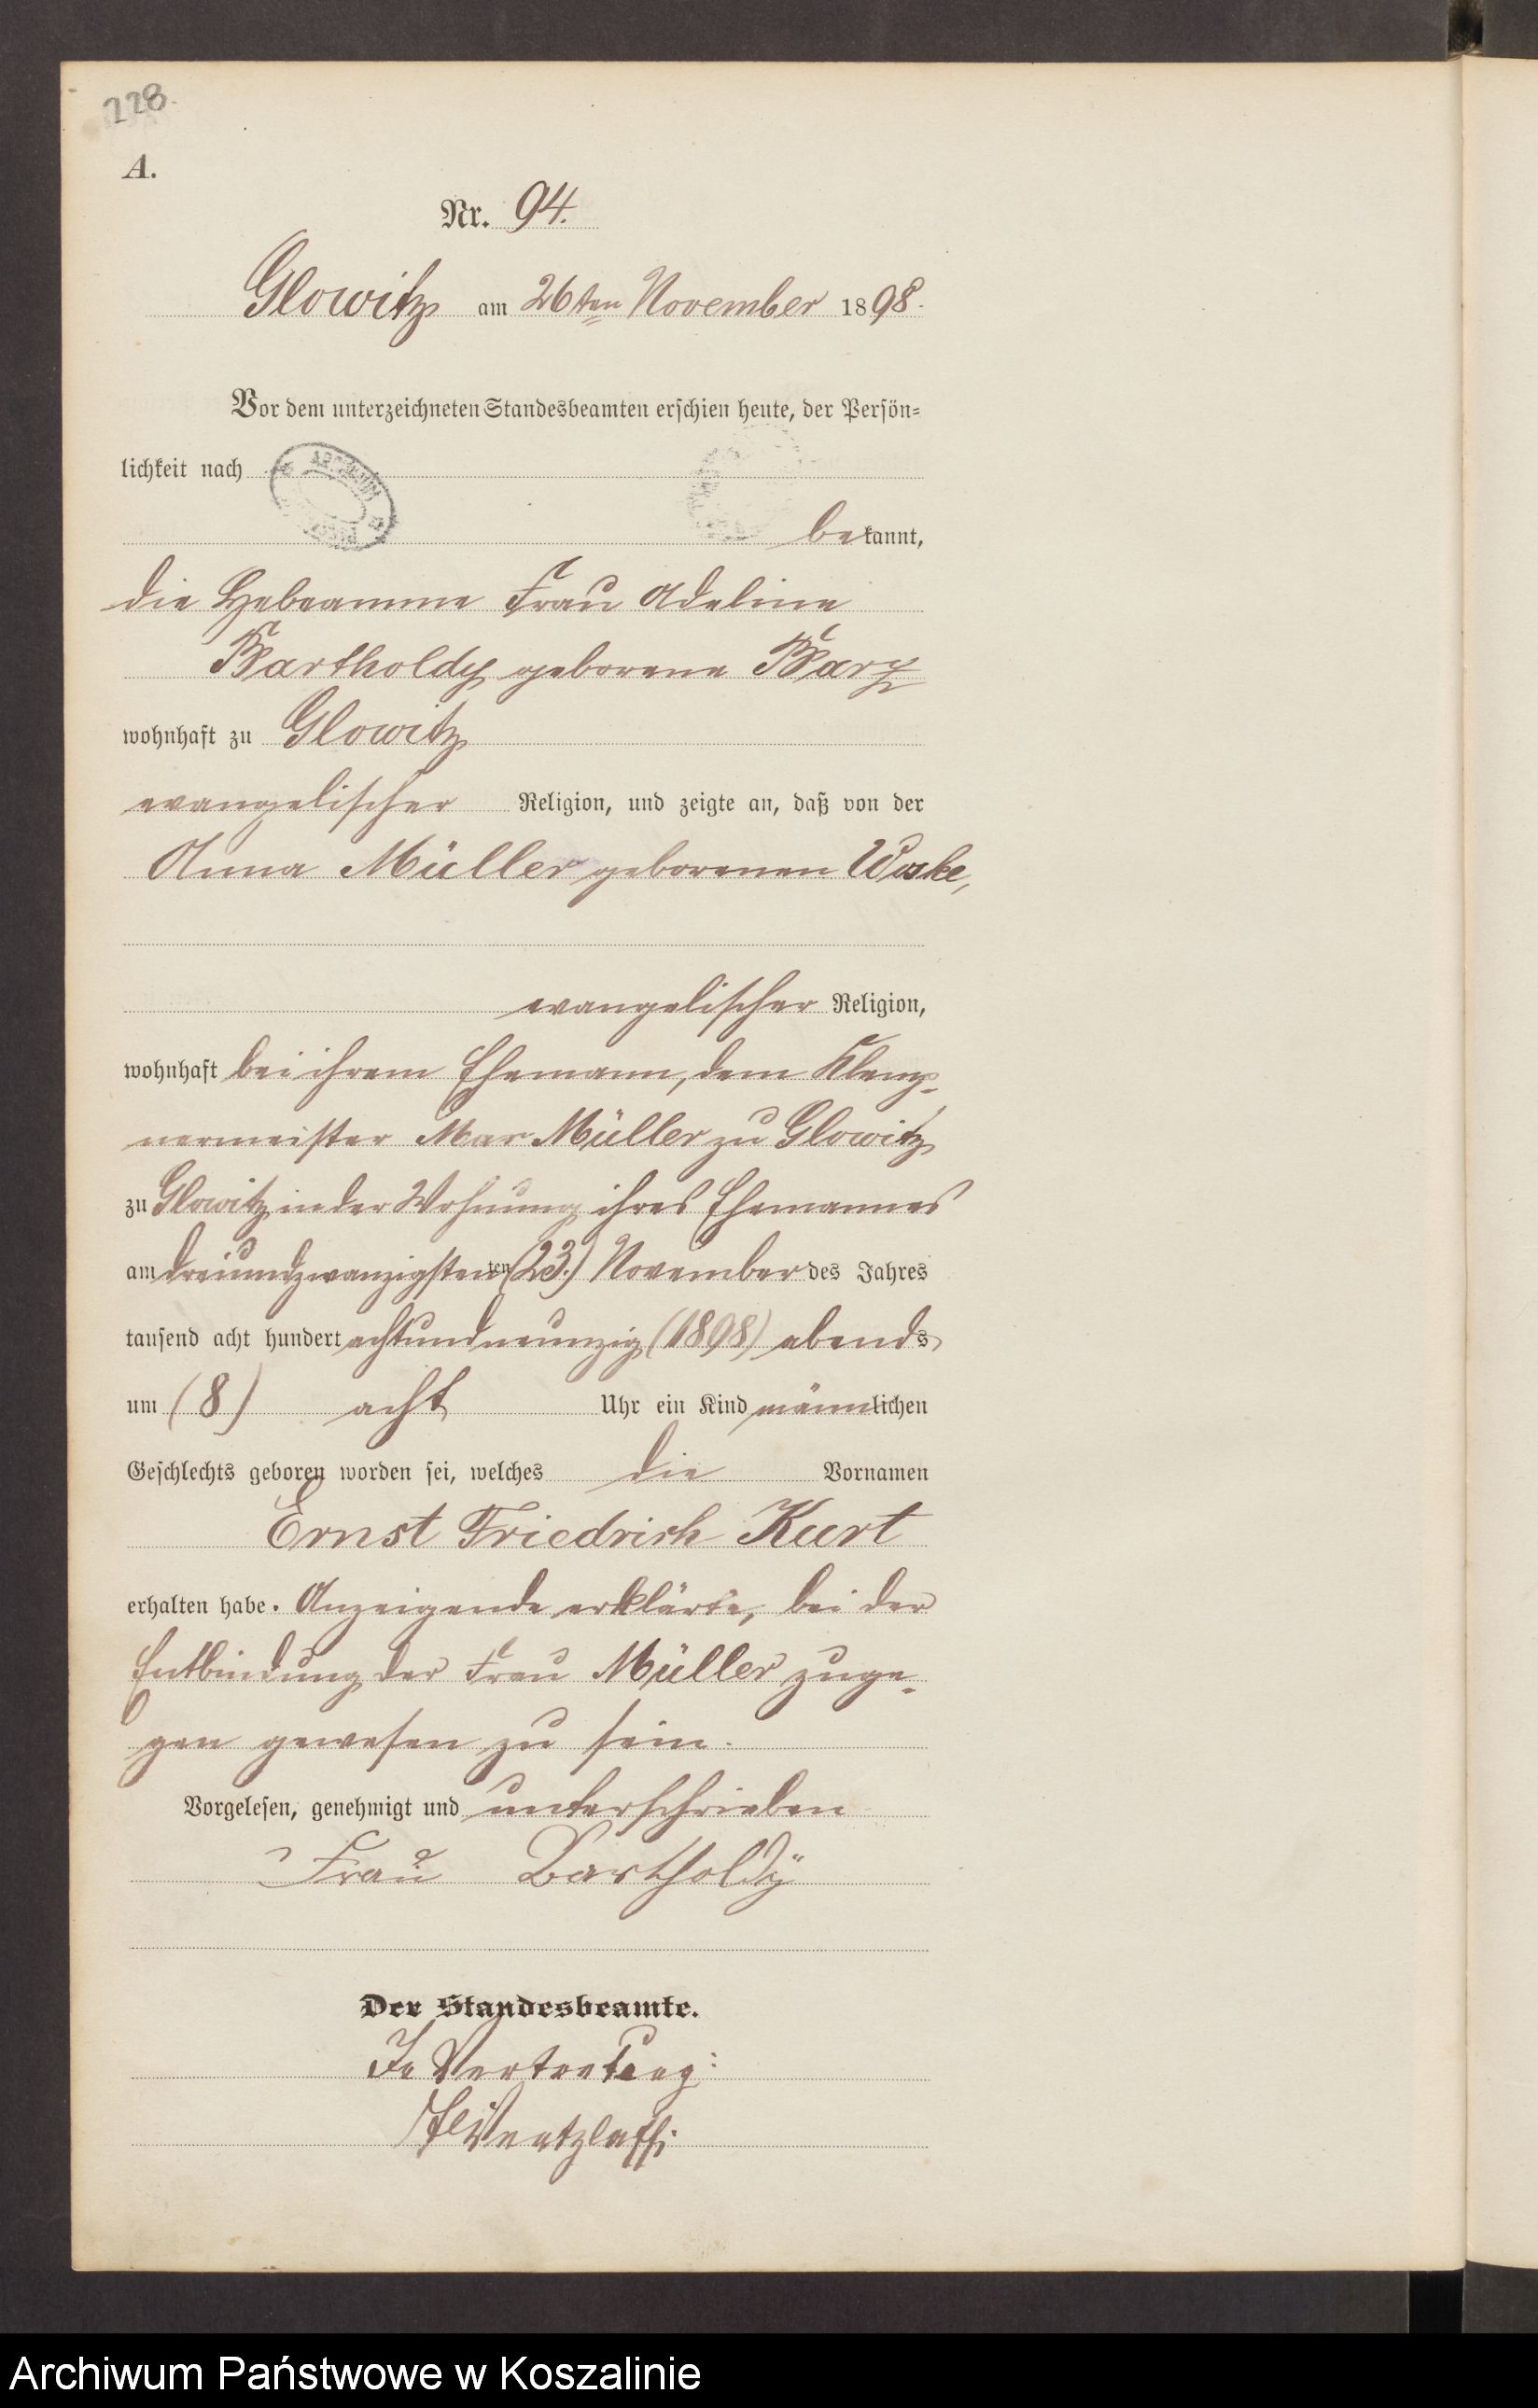 228.
A.
Nr. 94.
Glowitz am 26ten November 1898.
Vor dem unterzeichneten Standesbeamten erschien heute, der Persön=
lichkeit nach
bekannt,
die Hebeamme Frau Adeline
Bartholdy geborene Barz
wohnhaft zu Glowitz
evangelischer Religion, und zeigte an, daß von der
Anna Müller geborenen Woske,
evangelischer Religion,
wohnhaft bei ihrem Ehemann, dem Klemp-
nermeister Max Müller zu Glowitz
zu Glowitz in der Wohnung ihres Ehemannes
am dreiundzwanzigsten ten (23.) November des Jahres
tausend acht hundert achtundneunzig (1898) abends
um (8) acht Uhr ein Kind männlichen
Geschlechts geboren worden sei, welches die Vornamen
Ernst Friedrich Kurt
erhalten habe. Anzeigende erklärte, bei der
Entbindung der Frau Müller zuge-
gen gewesen zu sein.
Vorgelesen, genehmigt und unterschrieben
Frau Bartholdÿ
Der Standesbeamte.
In Vertretung:
Archiwum Państwowe w Koszalinie